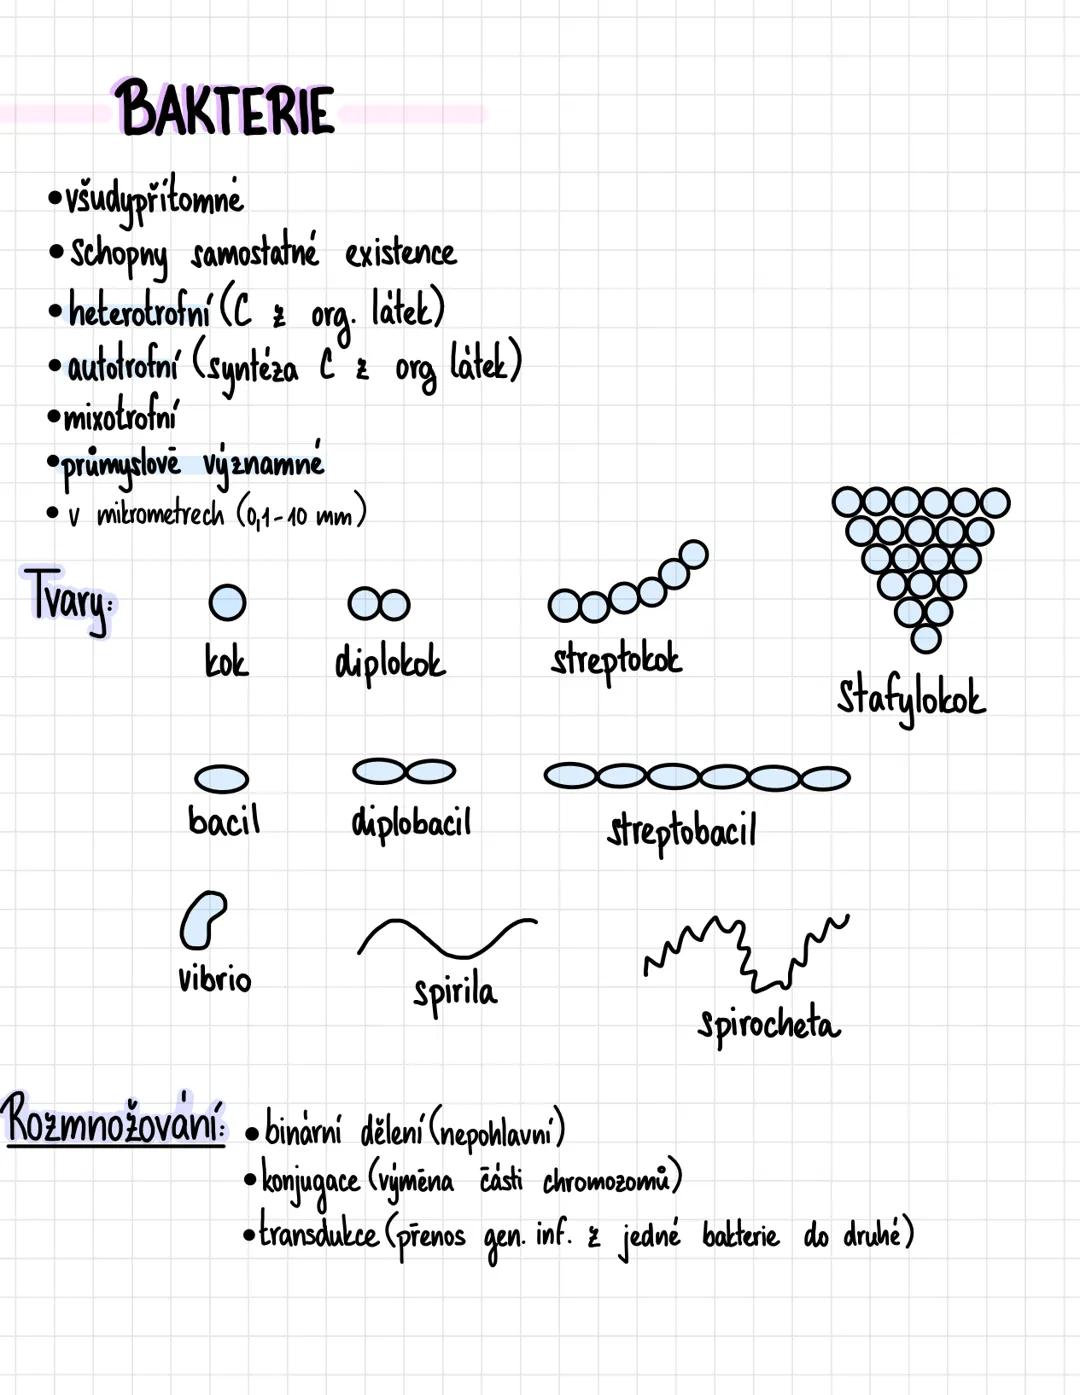 BAKTERIE
•všudypřítomné
•Schopny samostatné existence
•heterotrofní (C z org. látek)
•autotrofní (syntéza C z org látek)
•mixotrofní
•průmyslově významné
•v mikrometrech (0,1-10 mm)
Tvary:
kok diplokok streptokok stafylokok
bacil diplobacil streptobacil
vibrio spirila spirocheta
Rozmnožování: •binární dělení (nepohlavní)
•konjugace (výměna části chromozomů)
•transdukce (přenos gen. inf. z jedné bakterie do druhé)